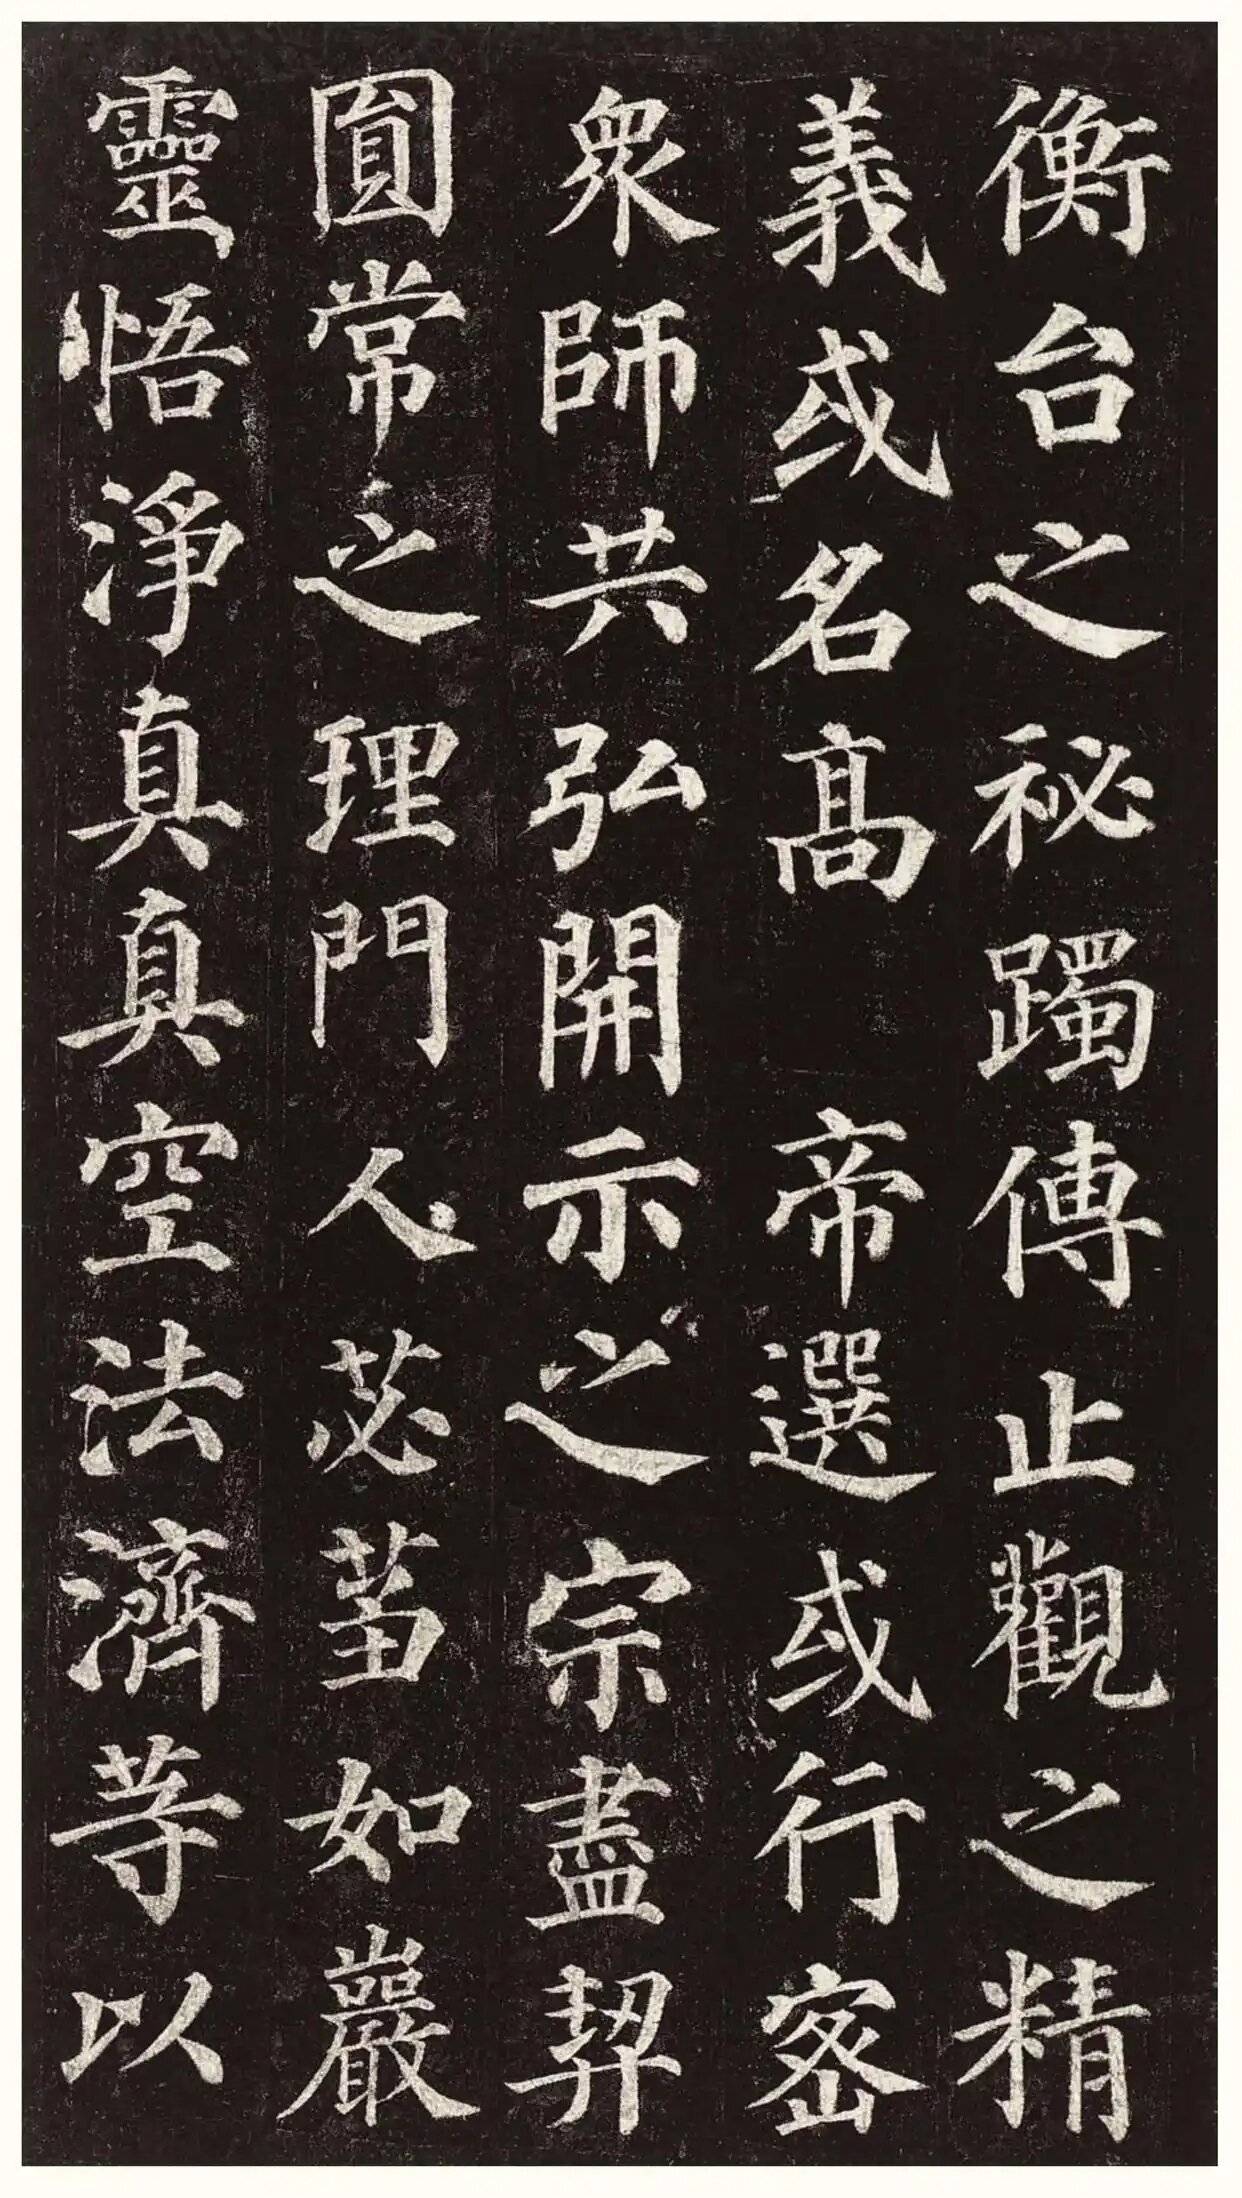 衡台之秘躅傳止觀之精
義或名高 帝選或行密
衆師共弘開示之宗盡契
圓常之理門人苾蒭如巖
靈悟淨真真空法濟等以